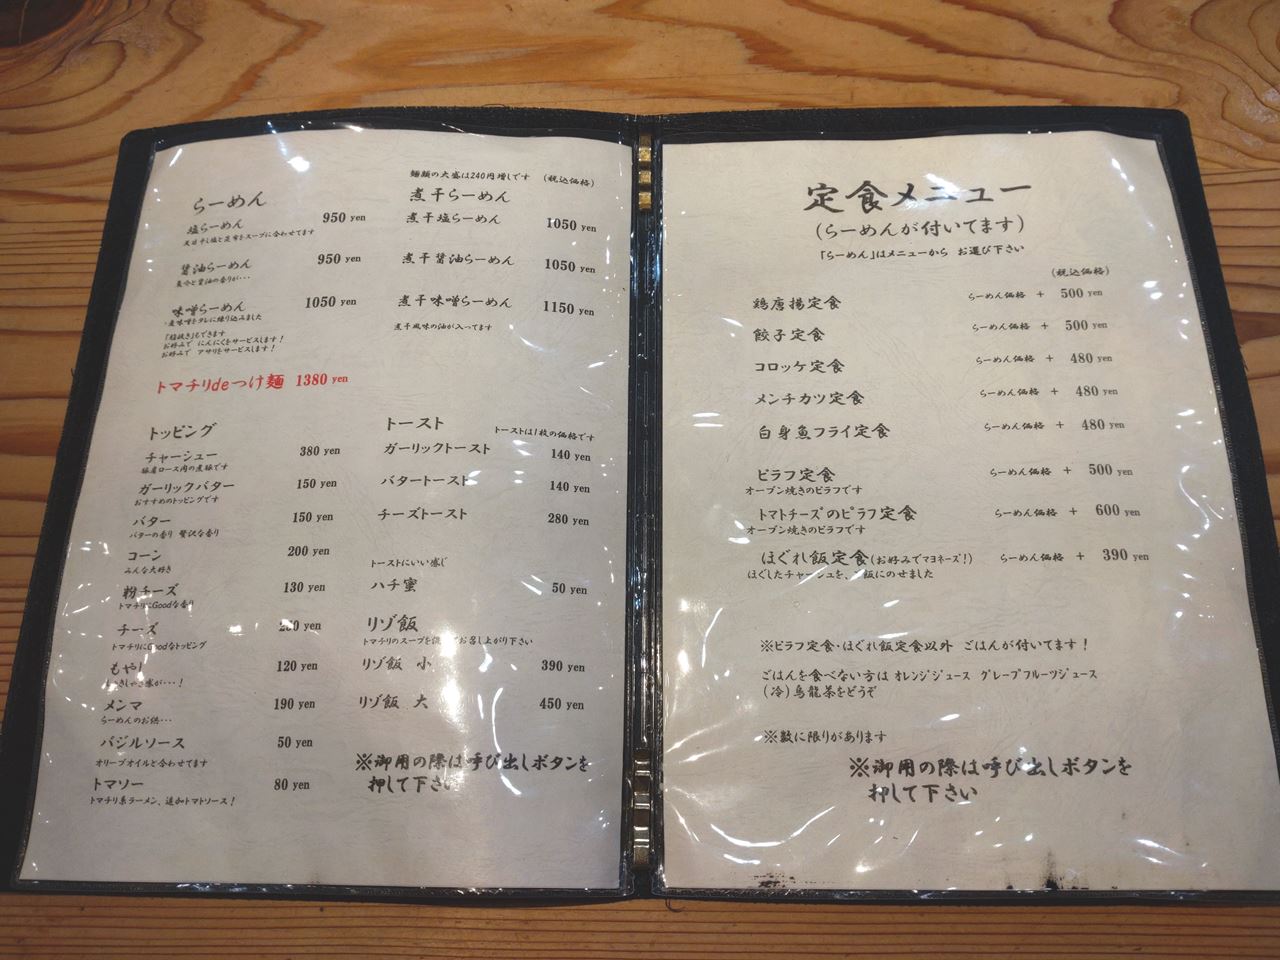 麺類の大盛は240円増しです (税込価格)
らーめん
塩らーめん 950 yen
天日干し塩と昆布をスープに合わせてます
醤油らーめん 950 yen
魚介と醤油の香りが・・・
味噌らーめん 1050 yen
・麦味噌をタレに練り込みました
「粒抜き」もできます
お好みで にんにくをサービスします!
お好みで アサリをサービスします!
煮干らーめん
煮干塩らーめん 1050 yen
煮干醤油らーめん 1050 yen
煮干味噌らーめん 1150 yen
煮干風味の油が入ってます
トマチリdeつけ麺 1380 yen
トッピング
チャーシュー 380 yen
豚肩ロース肉の煮豚です
ガーリックバター 150 yen
おすすめのトッピングです
バター 150 yen
バターの香り 贅沢な香り
コーン 200 yen
みんな大好き
粉チーズ 130 yen
トマチリにGoodな香り
チーズ yen
トマチリにGoodなトッピング
もやし 120 yen
しゃきしゃき感が・・・!
メンマ 190 yen
らーめんのお供・・・
バジルソース 50 yen
オリーブオイルと合わせてます
トマソー 80 yen
トマチリ系ラーメン、追加トマトソース!
トースト
トーストは1枚の価格です
ガーリックトースト 140 yen
バタートースト 140 yen
チーズトースト 280 yen
トーストにいい感じ
ハチ蜜 50 yen
リゾ飯
トマチリのスープを お召し上がり下さい
リゾ飯 小 390 yen
リゾ飯 大 450 yen
※御用の際は呼び出しボタンを
押して下さい
定食メニュー
(らーめんが付いてます)
「らーめん」はメニューから お選び下さい
(税込価格)
鶏唐揚定食 らーめん価格 + 500 yen
餃子定食 らーめん価格 + 500 yen
コロッケ定食 らーめん価格 + 480 yen
メンチカツ定食 らーめん価格 + 480 yen
白身魚フライ定食 らーめん価格 + 480 yen
ピラフ定食 らーめん価格 + 500 yen
オーブン焼きのピラフです
トマトチーズのピラフ定食 らーめん価格 + 600 yen
オーブン焼きのピラフです
ほぐれ飯定食(お好みでマヨネーズ!) らーめん価格 + 390 yen
ほぐしたチャーシュを、ご飯にのせました
※ピラフ定食・ほぐれ飯定食以外 ごはんが付いてます!
ごはんを食べない方は オレンジジュース グレープフルーツジュース
(冷)烏龍茶をどうぞ
※数に限りがあります
※御用の際は呼び出しボタンを
押して下さい